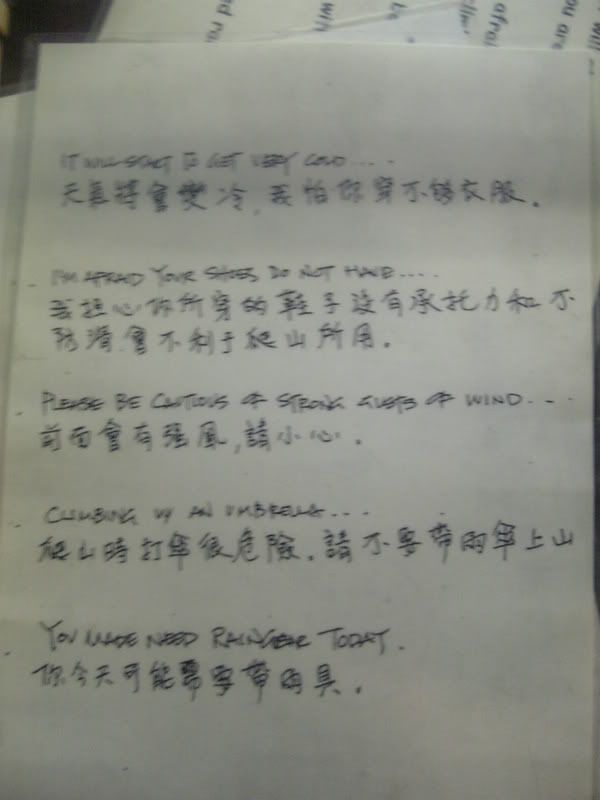 d no
with
be
afrai
lie
ou are
will
IT WILL START TO GET VERY COLD....
天氣將會變冷，我怕你穿不够衣服。
I'M AFRAID YOUR SHOES DO NOT HAVE.....
我担心你所穿的鞋子沒有承托力和不
防滑會不利于爬山所用。
PLEASE BE CAUTIOUS OF STRONG GUSTS OF WIND...
前面會有强風，請小心。
CLIMBING W/ AN UMBRELLA...
爬山時打傘很危險。請不要帶雨傘上山
YOU MADE NEED RAINGEAR TODAY.
你今天可能需要帶雨具。